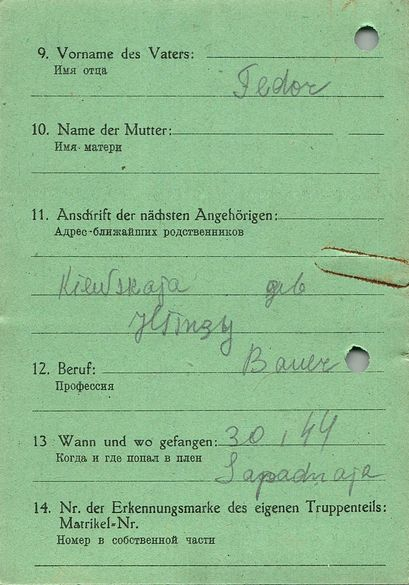 9. Vorname des Vaters:
Имя отца
Fedor
10. Name der Mutter:
Имя матери
11. Anschrift der nächsten Angehörigen:
Адрес ближайших родственников
Kiewskaja
12. Beruf: Bauer
Профессия
13 Wann und wo gefangen: 30, 44
Когда и где попал в плен
Sapadnaja
14. Nr. der Erkennungsmarke des eigenen Truppenteils:
Matrikel-Nr.
Номер в собственной части